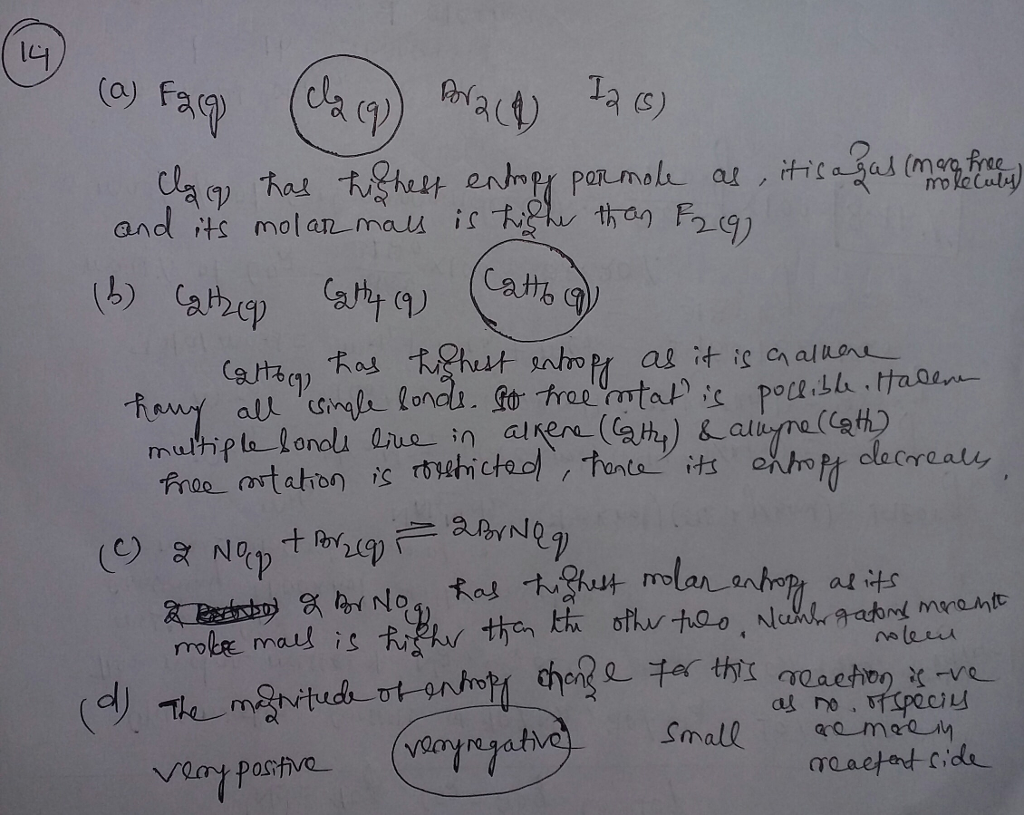 14
(a) F2(g) Cl2(g) Br2(l) I2(s)
Cl2(g) has highest entropy per mole as, it is a gas (more free molecules)
and its molar mass is higher than F2(g)
(b) C2H2(g) C2H4(g) C2H6(g)
C2H6(g) has highest entropy as it is an alkane
having all single bonds. So free rotatn is possible.
multiple bonds like in alkene (C2H4) & alkyne (C2H2)
free rotation is restricted, hence its entropy decreases.
(c) 2 NO(g) + Br2(g) ⇌ 2BrNO(g)
2 BrNO(g) has highest molar entropy as its
molar mass is higher than the other two. Number of atoms more in the
molecule
(d) The magnitude of entropy change for this reaction is -ve
as no. of species
very positive very negative small are more in
reactant side